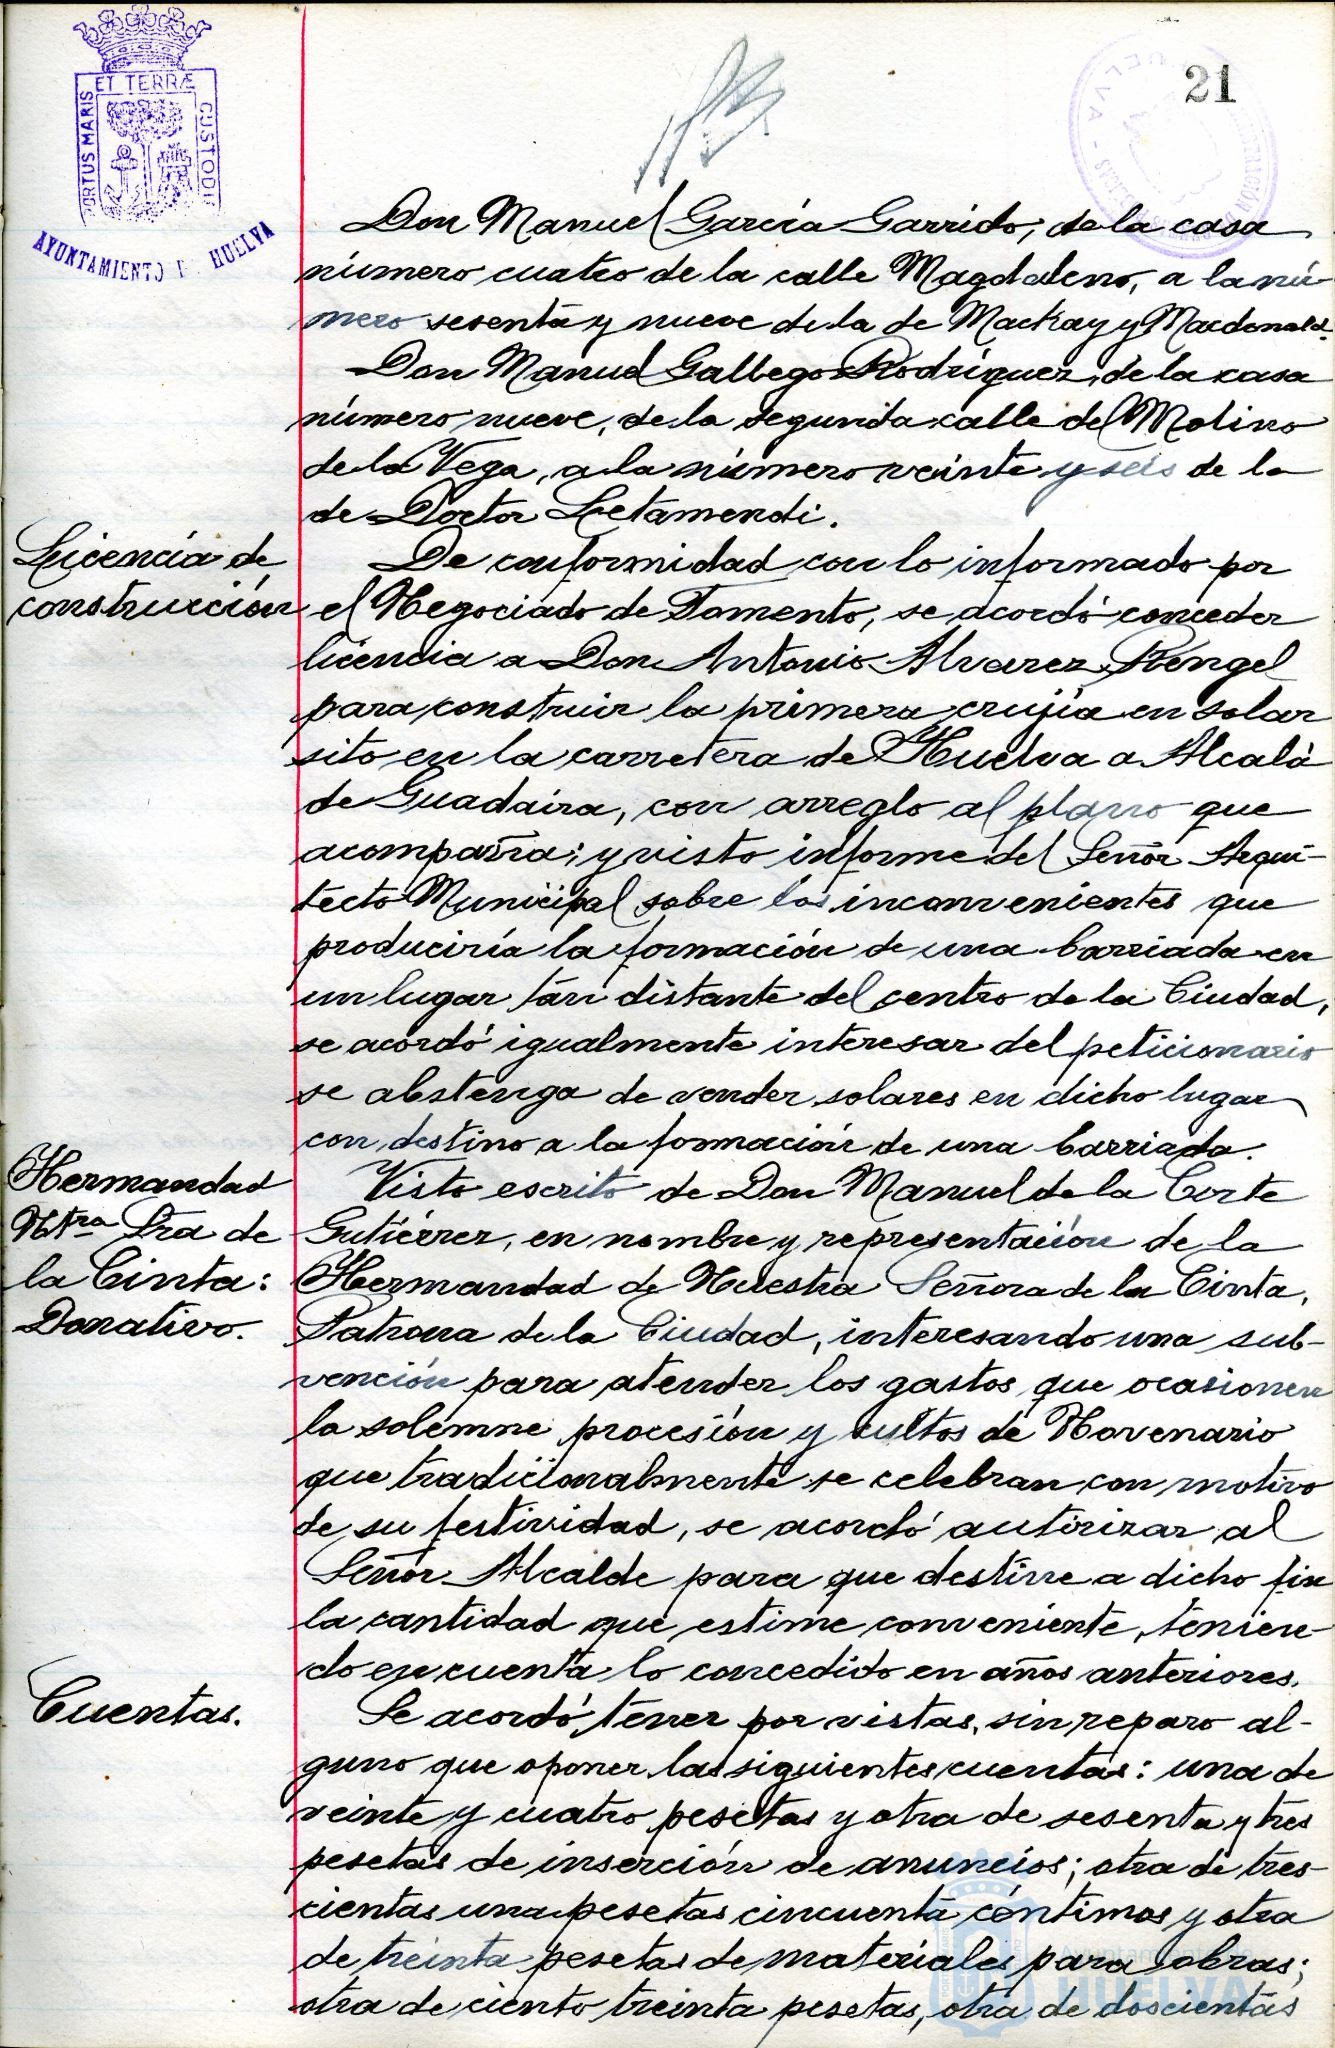 PORTUS MARIS ET TERRÆ CUSTODI
AYUNTAMIENTO D HUELVA
21
HUELVA
Don Manuel García Garrido, de la casa
número cuatro de la calle Magdalena, a la nú-
mero sesenta y nueve de la de Mackay y Macdonald.
Don Manuel Gallego Rodríguez, de la casa
número nueve, de la segunda calle del Molino
de la Vega, a la número veinte y seis de la
de Doctor Letamendi.
Licencia de
construcción
De conformidad con lo informado por
el Negociado de Fomento, se acordó conceder
licencia a Don Antonio Alvarez Rengel
para construir la primera crujía en solar
sito en la carretera de Huelva a Alcalá
de Guadaira, con arreglo al plano que
acompaña; y visto informe del Señor Arqui-
tecto Municipal sobre los inconvenientes que
produciría la formación de una barriada en
un lugar tán distante del centro de la Ciudad,
se acordó igualmente interesar del peticionario
se abstenga de vender solares en dicho lugar
con destino a la formación de una barriada.
Hermandad
Ntra Sra de
la Cinta:
Donativo.
Visto escrito de Don Manuel de la Corte
Gutiérrez, en nombre y representación de la
Hermandad de Nuestra Señora de la Cinta,
Patrona de la Ciudad, interesando una sub-
vención para atender los gastos que ocasionen
la solemne procesión y cultos de Novenario
que tradicionalmente se celebran con motivo
de su festividad, se acordó autorizar al
Señor Alcalde para que destine a dicho fin
la cantidad que estime conveniente, tenien-
do en cuenta lo concedido en años anteriores.
Cuentas.
Se acordó tener por vistas, sin reparo al-
guno que oponer las siguientes cuentas: una de
veinte y cuatro pesetas y otra de sesenta y tres
pesetas de inserción de anuncios; otra de tres-
cientas una pesetas cincuenta céntimos y otra
de treinta pesetas de materiales para obras;
otra de ciento treinta pesetas, otra de doscientas
Ayuntamiento de
HUELVA